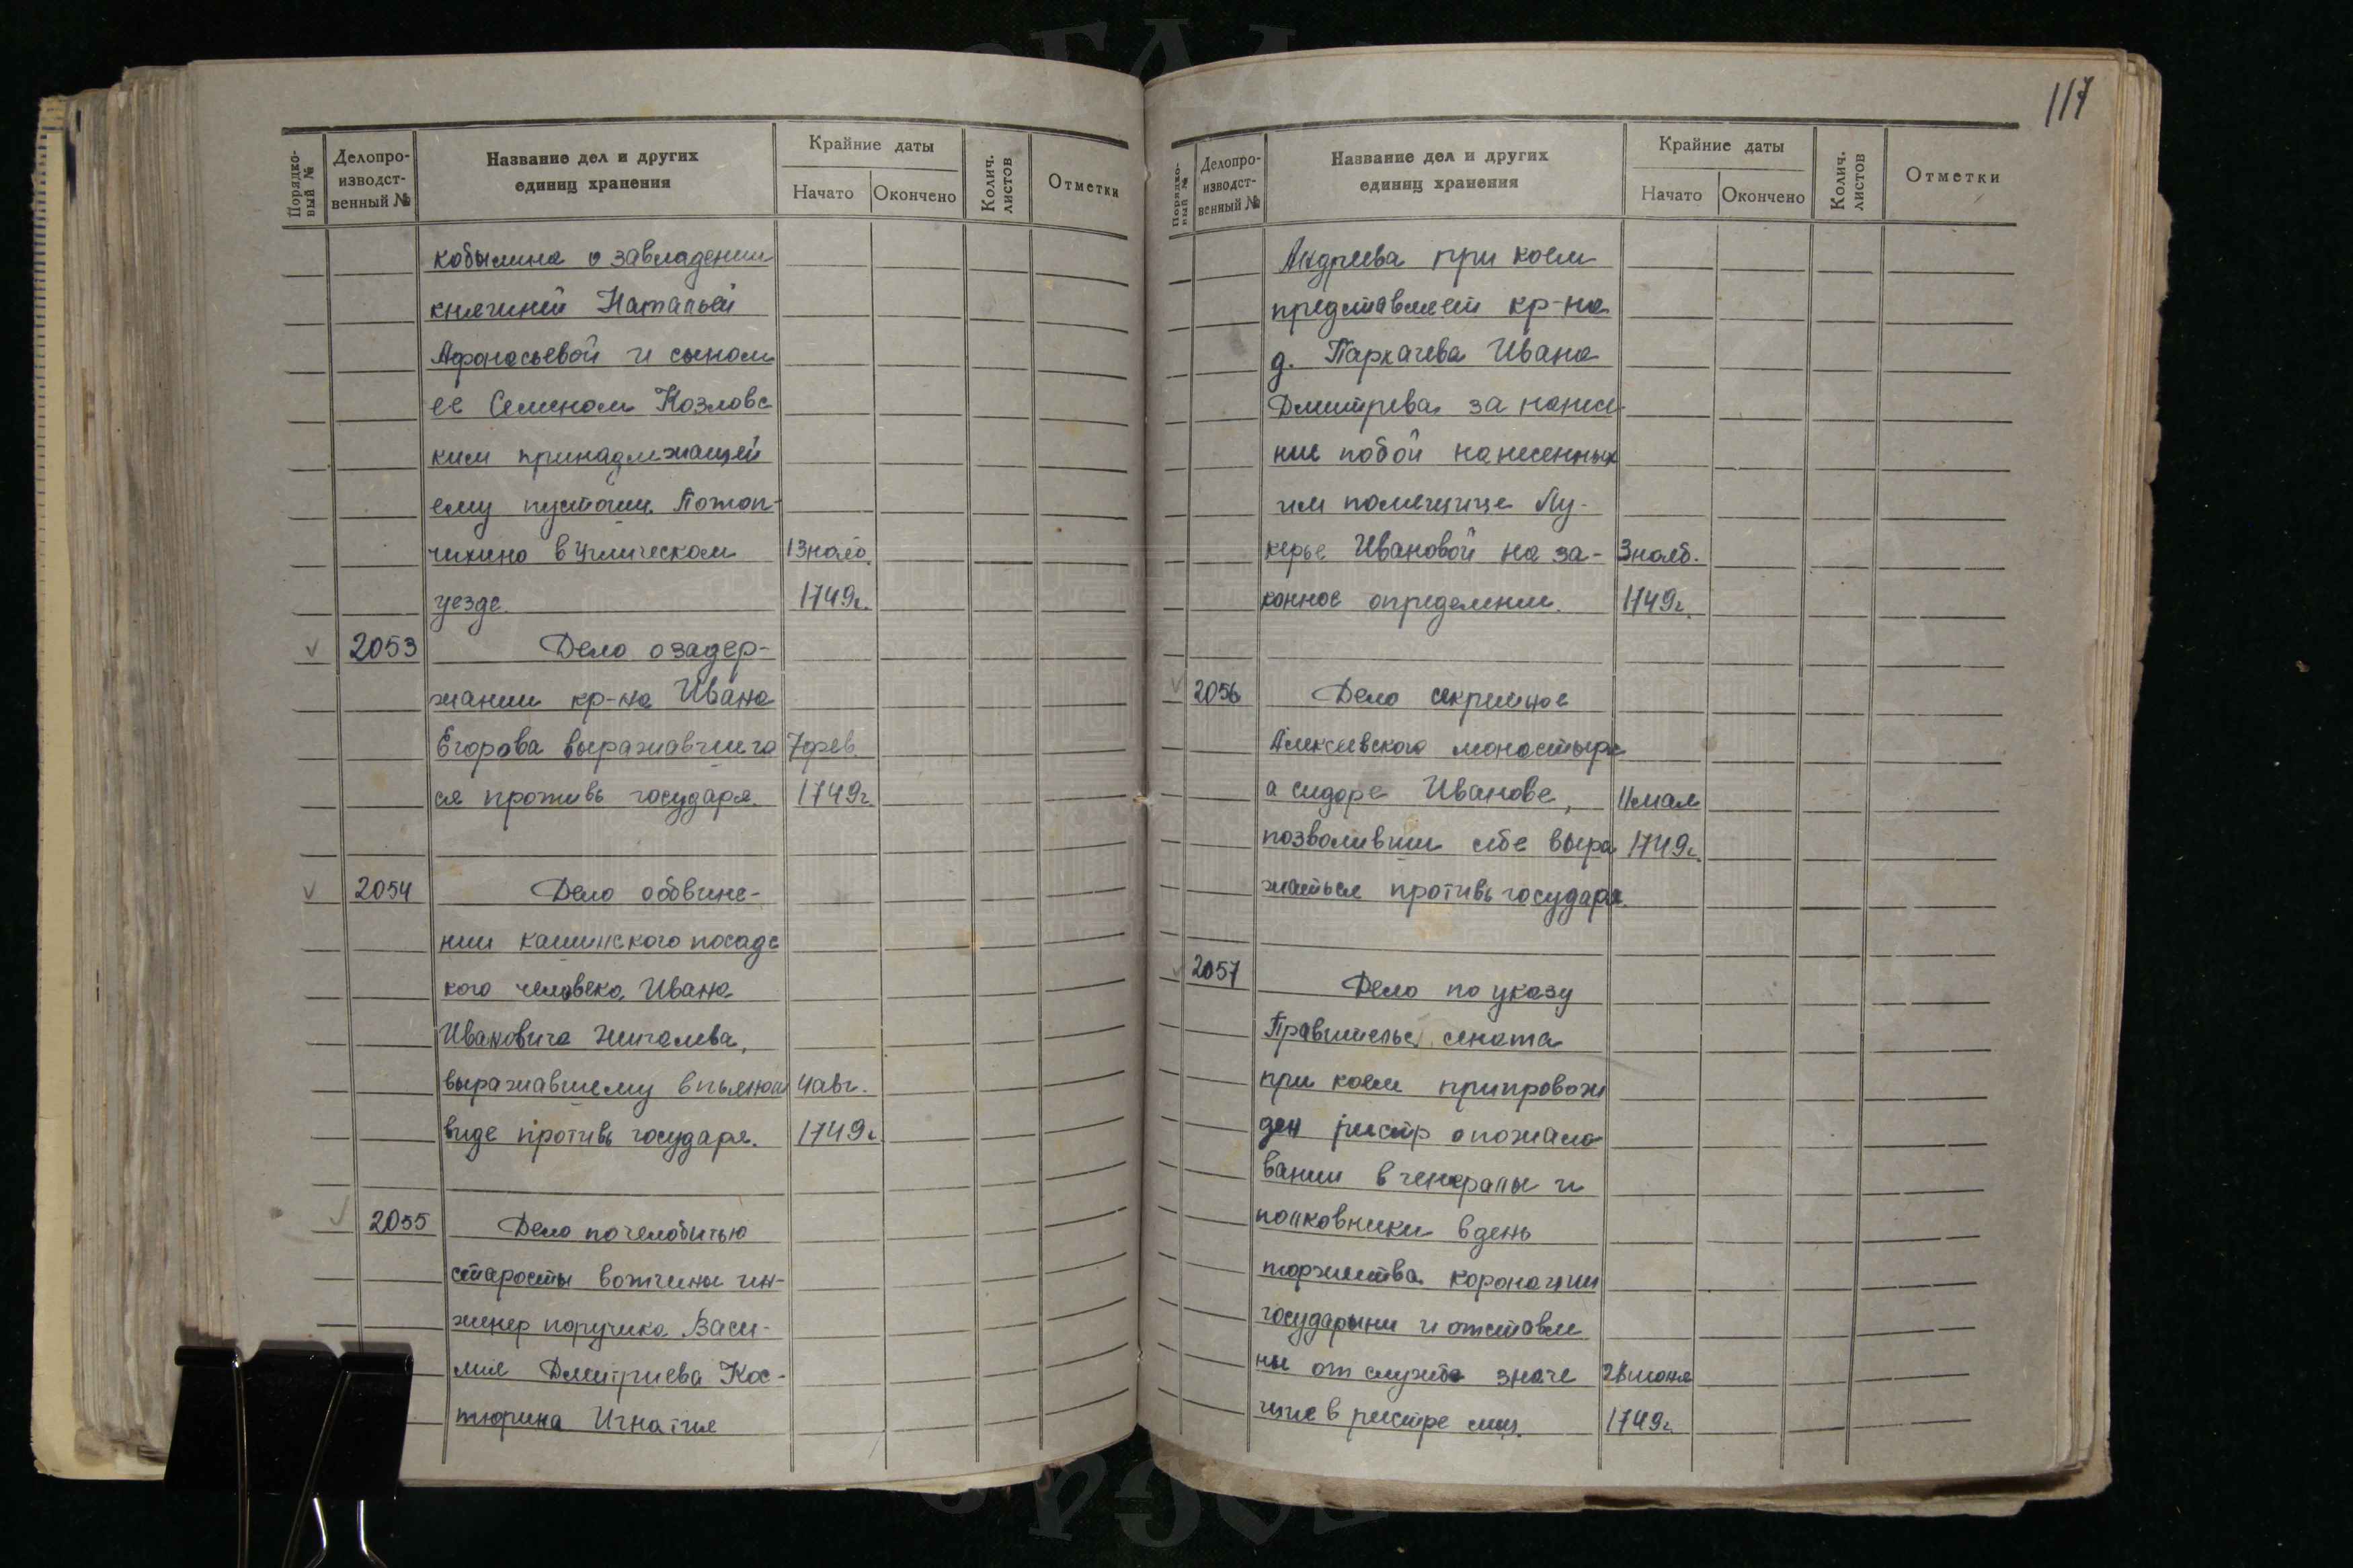 117
Порядко-
вый №
Делопро-
изводст-
венный №
Название дел и других
единиц хранения
Крайние даты
Начато
Окончено
Колич.
листов
Отметки
кобылина о завладении
княгиней Натальей
Афонасьевой и сыном
ее Семеном Козловс
ким принадлежащей
ему пустоши Потап-
чихино в Угличском 13 нояб.
уезде. 1749г.
2053 Дело о задер-
жании кр-на Ивана
Егорова выражавшего 7 фев.
ся противь государя. 1749г.
2054 Дело о обвине-
нии кашинского посадс
кого человека Ивана
Ивановича Жигалева,
выражавшему в пьяном 4 авг.
виде противь государя. 1749г
2055 Дело по челобитью
старосты вотчины ин-
женер поручика Васи-
лия Дмитриева Кос-
тюрина Игнатия
Порядко-
вый №
Делопро-
изводст-
венный №
Название дел и других
единиц хранения
Крайние даты
Начато
Окончено
Колич.
листов
Отметки
Андреева при коем
представляет кр-на
д. Паркачева Ивана
Дмитрева за нанесе-
ние побой нанесенных
им помещице Лу-
керье Ивановой на за- 3 нояб.
конное определении. 1749г.
2056 Дело секретное
Алексеевского монастыря
о сидоре Иванове, 11 мая
позволивши себе выра 1749г.
жаться противь государя.
2057 Дело по указу
Правительс. сената
при коем припровож
ден реестр о пожало
вании в генералы и
полковники в день
торжества коронации
государыни и отставле
ны от службе значе 28 июня
щие в реестре лиц. 1749г.